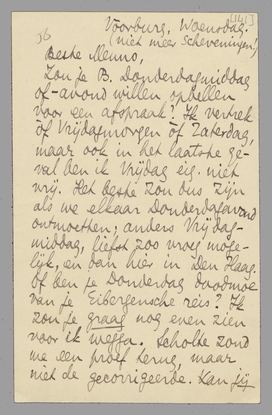 [141]
36
Voorburg, Woensdag.
(niet meer Scheveningen!)
Beste Menno,
Zou je B. Donderdagmiddag
of -avond willen opbellen
voor een afspraak? Ik vertrek
òf Vrijdagmorgen òf Zaterdag,
maar ook in het laatste ge-
val ben ik Vrijdag eig. niet
vrij. Het beste zou dus zijn
als we elkaar Donderdagavond
ontmoetten; anders Vrijdag-
middag, liefst zoo vroeg moge-
lijk, en dan hier in Den Haag.
Of ben je Donderdag doodmoe
van je Eibergensche reis? Ik
zou je graag nog even zien
voor ik wegga. Scholte zond
me een proef terug, maar
niet de gecorrigeerde. Kan jij